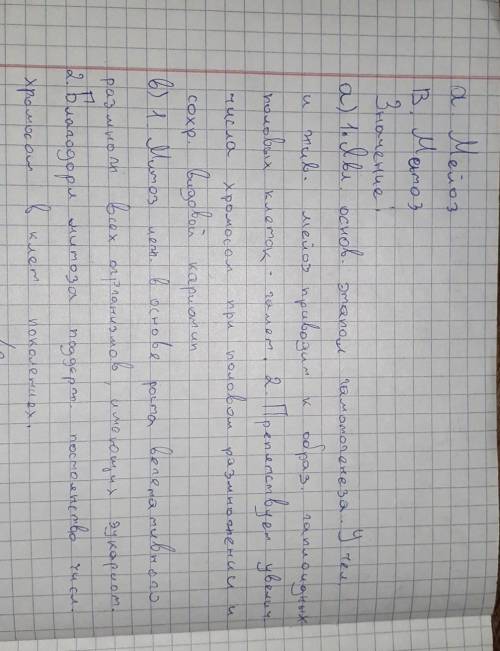 а Мейоз
В. Митоз
Значение:
а) 1. Явл. основ. этапом гаметогенеза. У чел.
и жив. мейоз приводит к образ. гаплоидных
половых клеток - гамет. 2. Препятствует увелич.
числа хромосом при половом размножении и
сохр. видовой кариотип
в) 1 Митоз леж. в основе роста вегетативного
размнож всех организмов, имеющих эукариот.
2. Благодаря митоза поддерж. постоянство числ.
хромосом в клет поколениях.